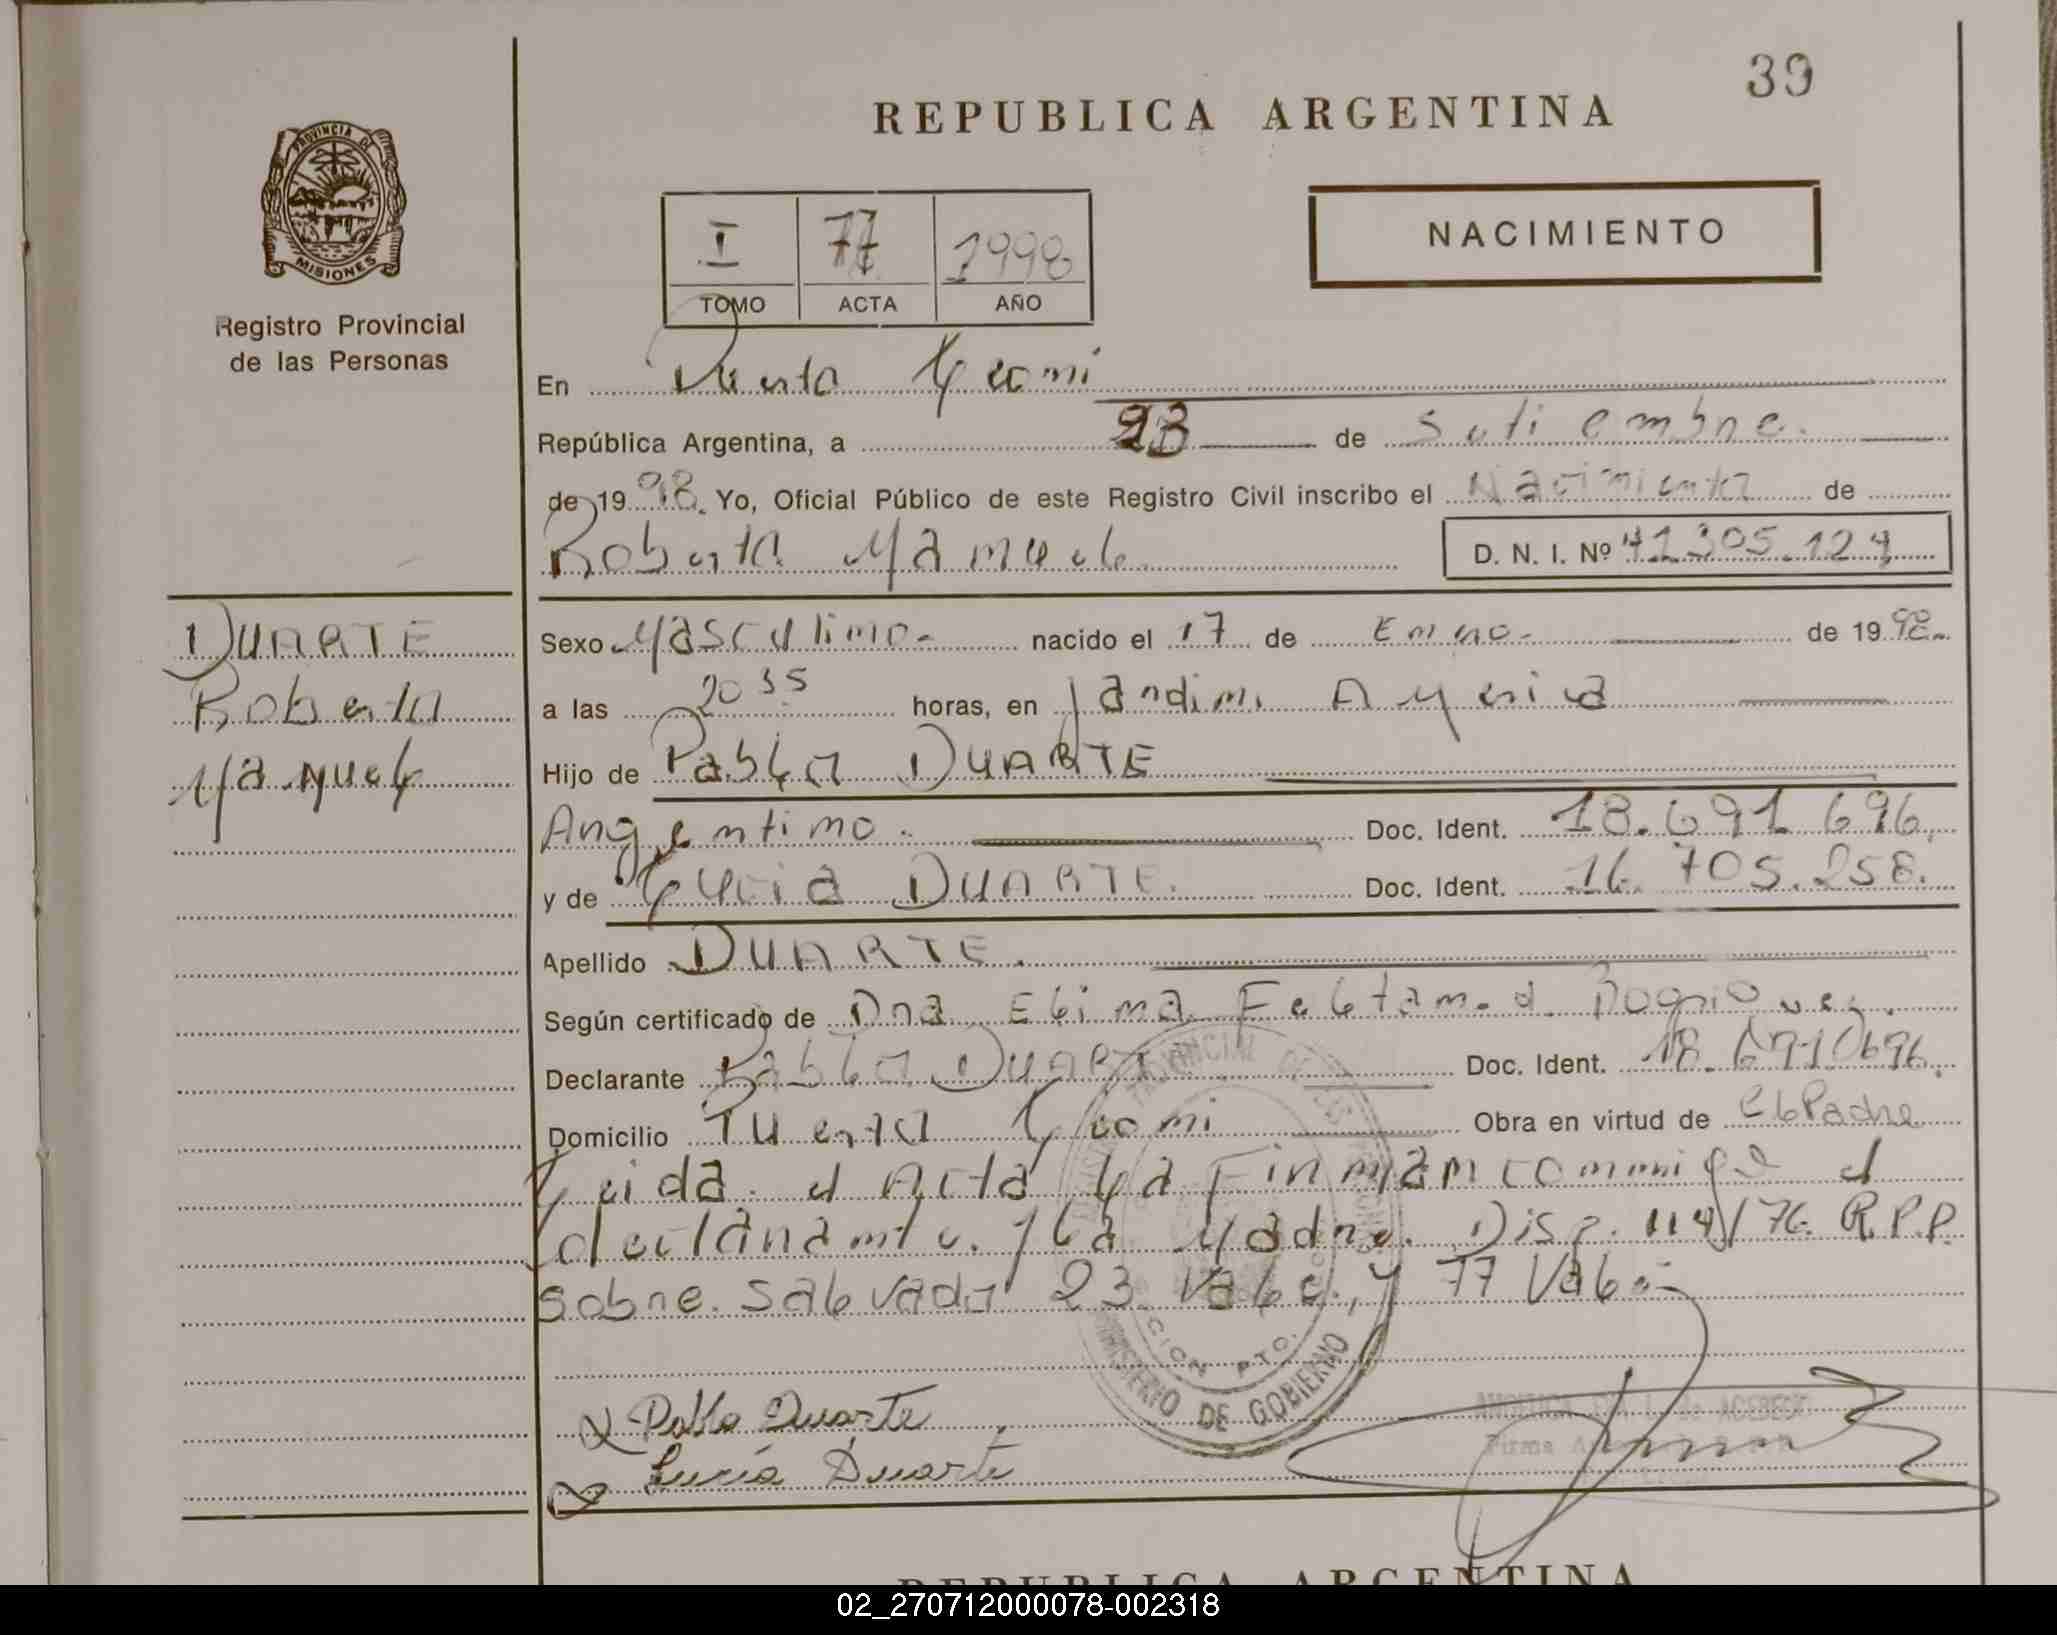 39
REPUBLICA ARGENTINA
PROVINCIA DE
MISIONES
Registro Provincial
de las Personas
I 77 1998
TOMO ACTA AÑO
NACIMIENTO
En Puerto Leoni
República Argentina, a 23 de setiembre.
de 1998. Yo, Oficial Público de este Registro Civil inscribo el Nacimiento de
Roberto Manuel D. N. I. Nº 41.305.124
DUARTE
Roberto
Manuel
Sexo Masculino.- nacido el 17 de Enero.- de 1998.-
a las 20 35 horas, en Jardin America
Hijo de Pablo DUARTE
Argentino. Doc. Ident. 18.691.696.
y de Lucia DUARTE. Doc. Ident. 16.705.258.
Apellido DUARTE.
Según certificado de Dra Elina
Declarante Pablo DUARTE Doc. Ident. 18.691.696.
Domicilio Puerto Leoni Obra en virtud de el Padre
Leida el Acta la Firman conmigo el
declarante y la Madre. Disp. 114/76. R.P.P.
sobre salvado 23 Vale, y 77 Vale.-
MINISTERIO DE GOBIERNO
Pablo Duarte
Lucía Duarte
REPUBLICA ARGENTINA
02_270712000078-002318